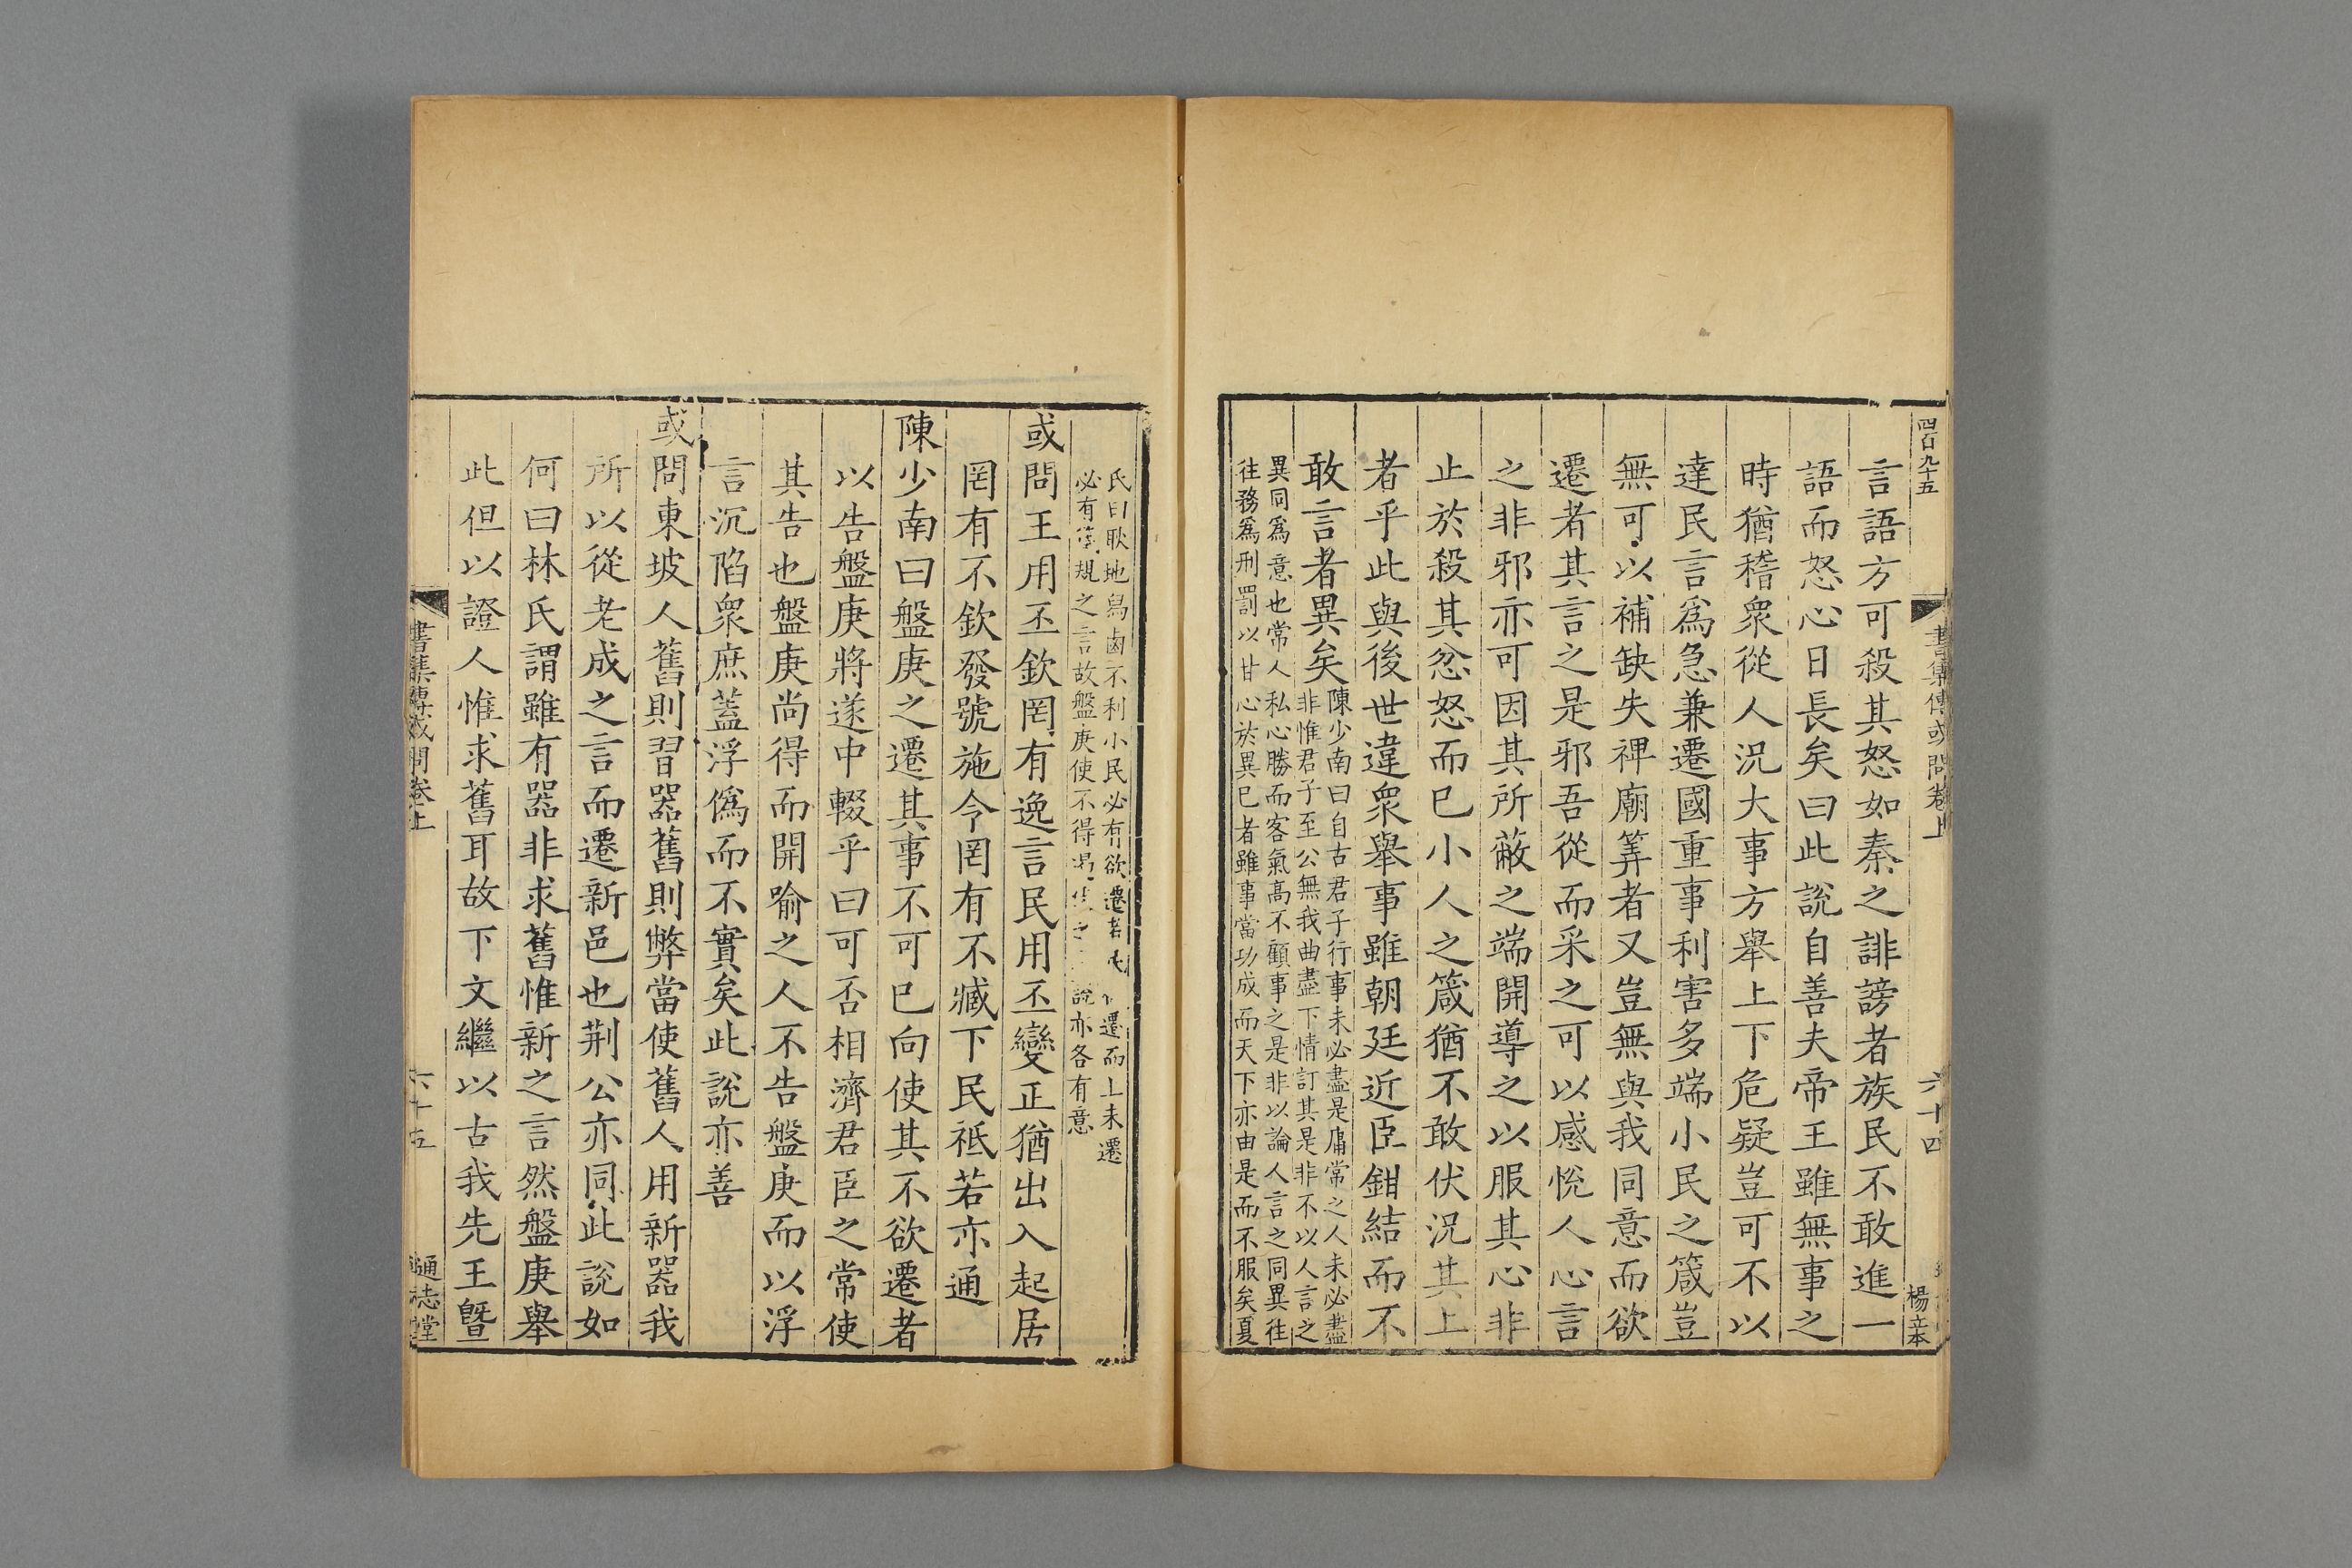 四百九十五
書集傳或問卷上
六十四
楊立本
言語方可殺其怒如秦之誹謗者族民不敢進一
語而怒心日長矣曰此說自善夫帝王雖無事之
時猶稽衆從人況大事方舉上下危疑豈可不以
達民言爲急兼遷國重事利害多端小民之箴豈
無可以補缺失裨廟筭者又豈無與我同意而欲
遷者其言之是邪吾從而采之可以感悅人心言
之非邪亦可因其所蔽之端開導之以服其心非
止於殺其忿怒而已小人之箴猶不敢伏況其上
者乎此與後世違衆舉事雖朝廷近臣鉗結而不
敢言者異矣
陳少南曰自古君子行事未必盡是庸常之人未必盡
非惟君子至公無我曲盡下情訂其是非不以人言之
異同爲意也常人私心勝而客氣高不顧事之是非以論人言之同異徃
徃務爲刑罰以甘心於異已者雖事當功成而天下亦由是而不服矣夏
氏曰耿地舄鹵不利小民必有欲遷者民遷而上未遷
必有箴規之言故盤庚使不得之說亦各有意
或問王用丕欽罔有逸言民用丕變正猶出入起居
罔有不欽發號施令罔有不臧下民祗若亦通
陳少南曰盤庚之遷其事不可已向使其不欲遷者
以告盤庚將遂中輟乎曰可否相濟君臣之常使
其告也盤庚尚得而開喻之人不告盤庚而以浮
言沉陷衆庶蓋浮僞而不實矣此說亦善
或問東坡人舊則習器舊則弊當使舊人用新器我
所以從老成之言而遷新邑也荆公亦同此說如
何曰林氏謂雖有器非求舊惟新之言然盤庚舉
此但以證人惟求舊耳故下文繼以古我先王曁
書集傳或問卷上
六十五
通志堂